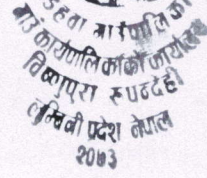 गाउँपालिका
गाउँ कार्यपालिकाको कार्यालय
विष्णुपुरा रुपन्देही
लुम्बिनी प्रदेश नेपाल
२०७३